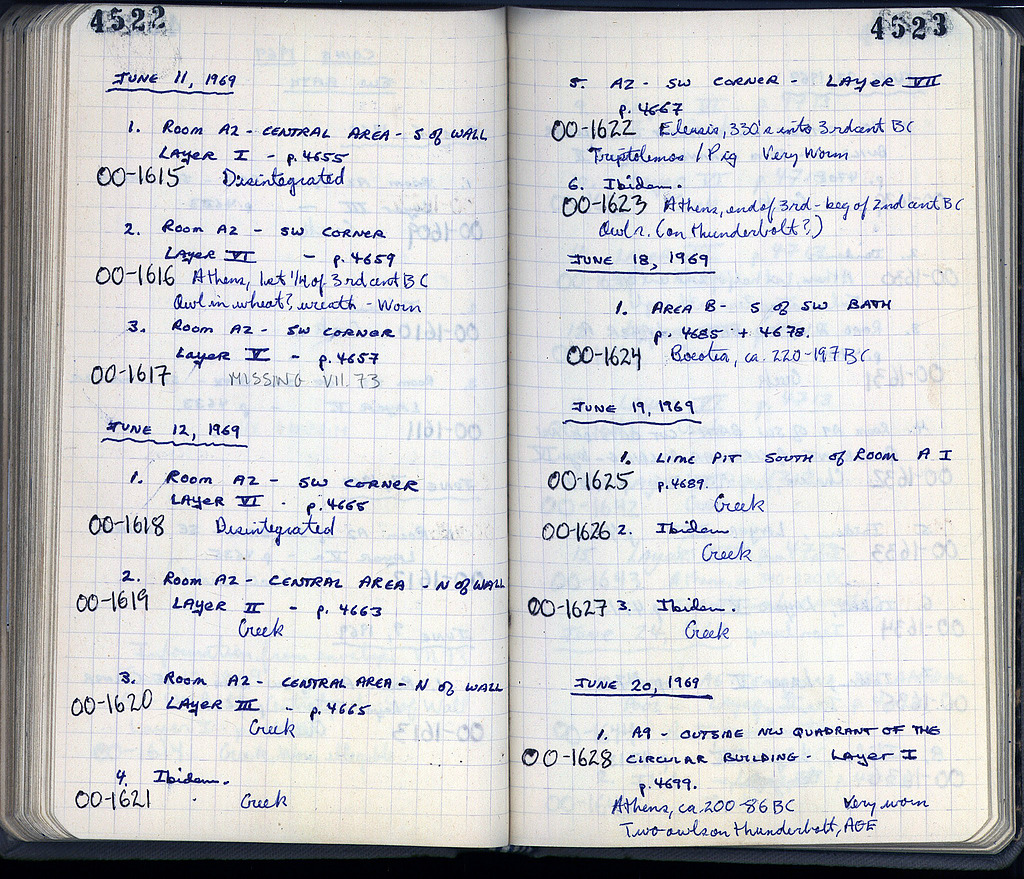 4522
JUNE 11, 1969
1. ROOM A2 - CENTRAL AREA - S OF WALL
LAYER I - p. 4655
OO-1615 Disintegrated
2. ROOM A2 - SW CORNER
LAYER VI - p. 4659
OO-1616 Athens, 1st 1/4 of 3rd cent BC
Owl in wheat? wreath - Worn
3. ROOM A2 - SW CORNER
LAYER V - p. 4657
OO-1617 MISSING VII.73
JUNE 12, 1969
1. ROOM A2 - SW CORNER
LAYER VI - p. 4665
OO-1618 Disintegrated
2. ROOM A2 - CENTRAL AREA - N OF WALL
OO-1619 LAYER II - p. 4663
Greek
3. ROOM A2 - CENTRAL AREA - N OF WALL
OO-1620 LAYER III - p. 4665
Greek
4. Ibidem.
OO-1621 Greek
4523
5. A2 - SW CORNER - LAYER VII
p. 4667
OO-1622 Eleusis, 330's into 3rd cent BC
Triptolemos / Pig Very Worn
6. Ibidem.
OO-1623 Athens, end of 3rd - beg of 2nd cent BC
Owl r. (on thunderbolt?)
JUNE 18, 1969
1. AREA B - S OF SW BATH
p. 4685 + 4678.
OO-1624 Boeotia, ca. 220-197 BC
JUNE 19, 1969
1. LIME PIT SOUTH OF ROOM A I
OO-1625 p. 4689.
Greek
OO-1626 2. Ibidem
Greek
OO-1627 3. Ibidem.
Greek
JUNE 20, 1969
1. A9 - OUTSIDE NW QUADRANT OF THE
OO-1628 CIRCULAR BUILDING - LAYER I
p. 4699.
Athens, ca. 200-86 BC Very worn
Two owls on thunderbolt, AΘE